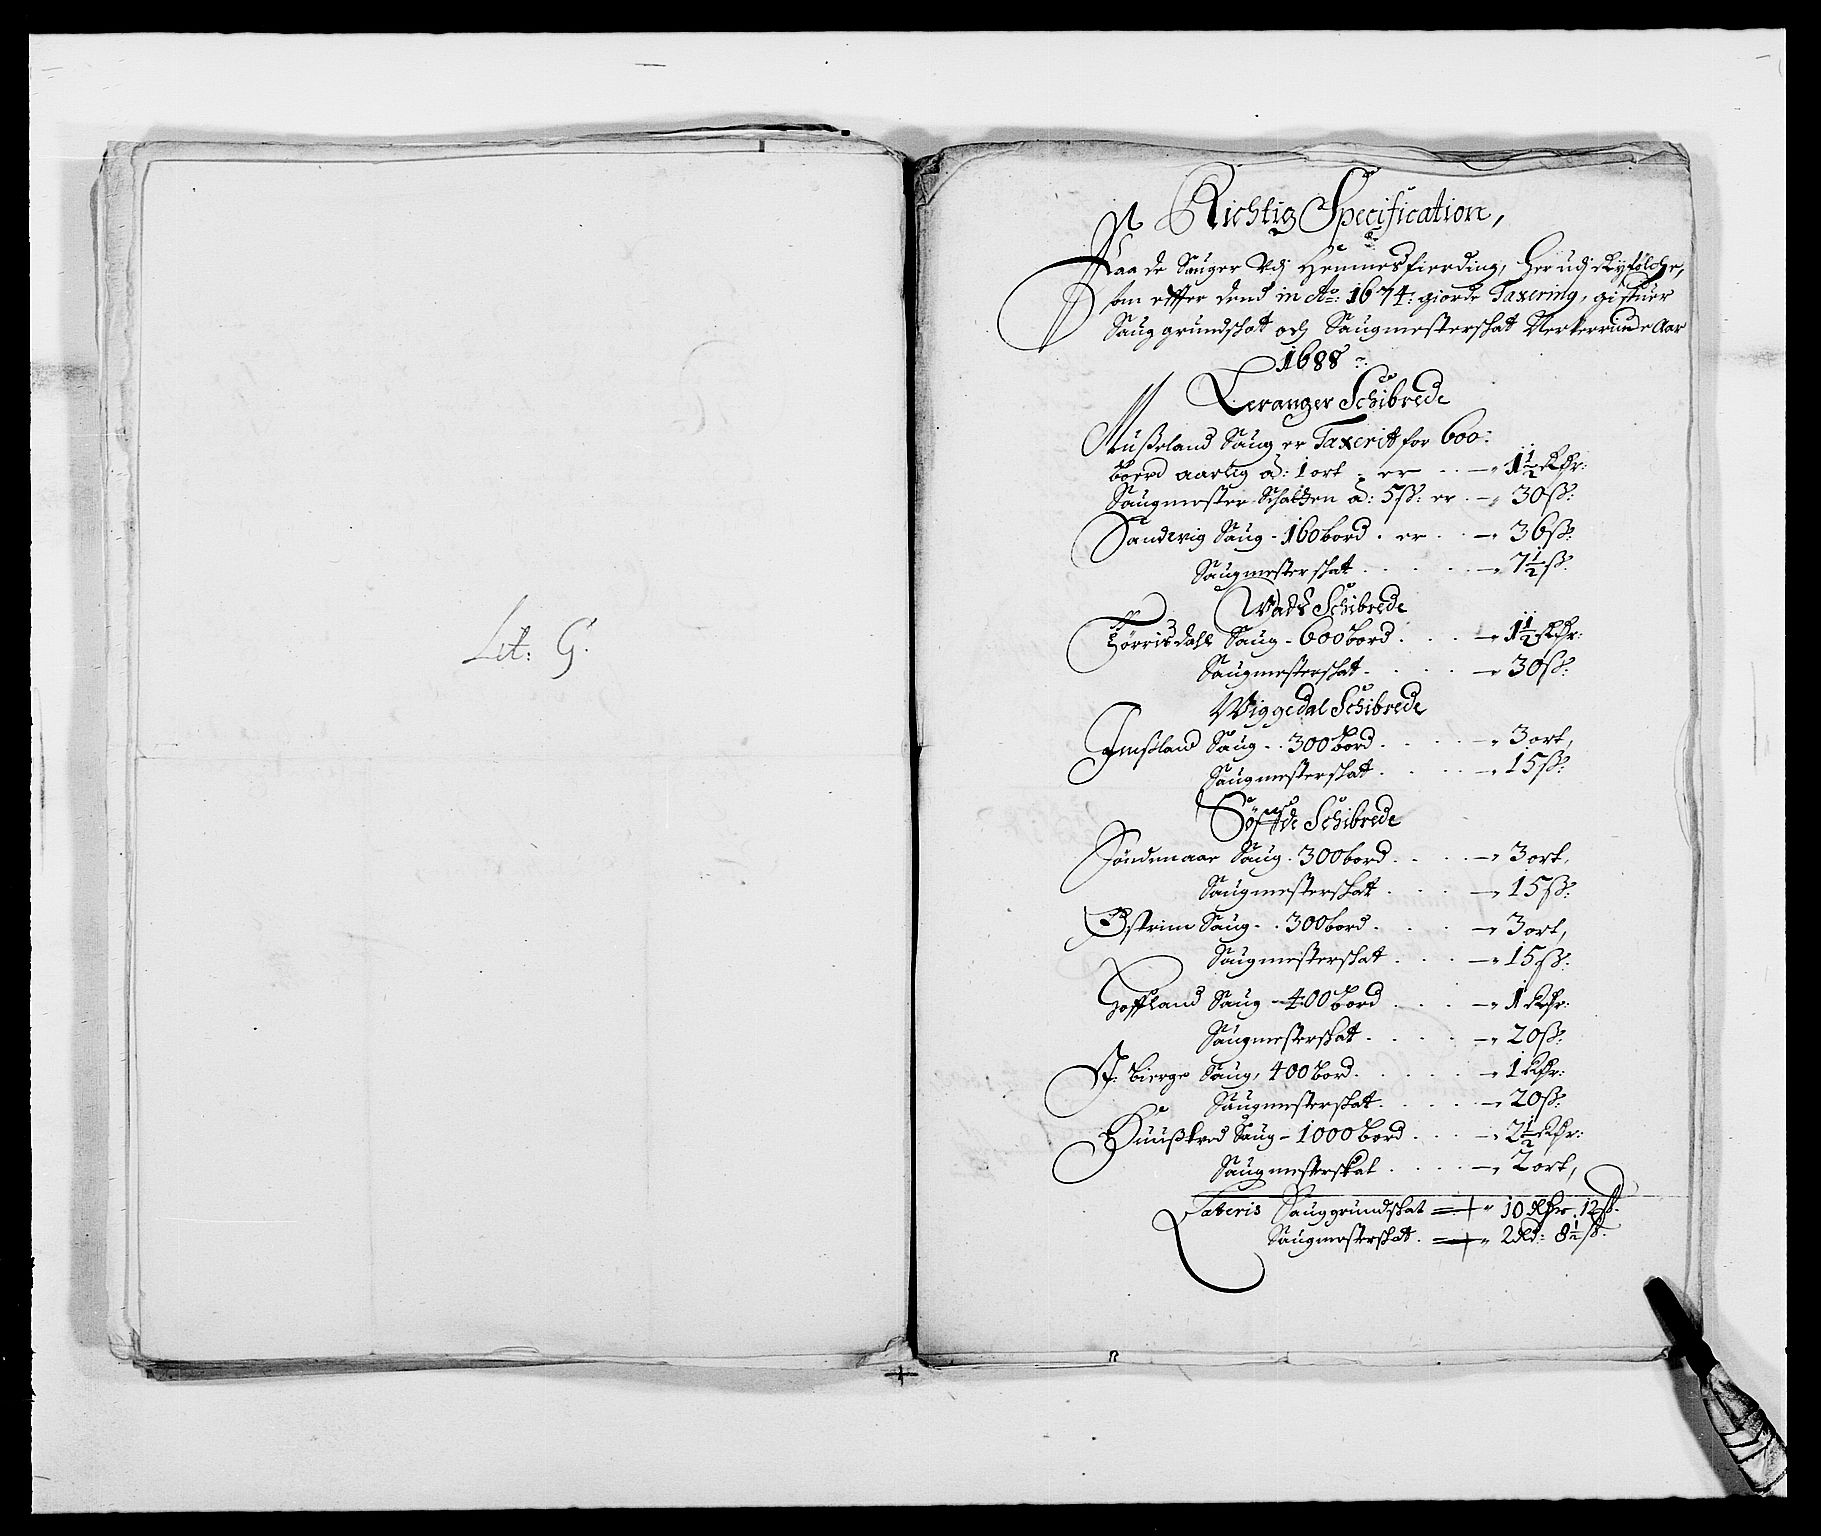 Lit: G.
N Richtig Specification,
Paa de Sauger Vdj Hemmesfierding, her udj Ryfølche,
som effter dend in Ao: 1674: giorde Taxering, gifuer
Sauggrundschat och Saugmesterschat Nerverinde Aar
1688
Leranger Schibrede
Mußeland Saug er Taxerit for 600:
Boerd aarlig ad: 1 ort er - 1 1/2 Rdr:
Saugmester Schatten ad: 5ß: er - 30ß:
Sandevig Saug - 160 bord. er - 36ß:
Saugmesterschat - 7 1/2 ß.
Wads Schibrede
Hørrisdahl Saug - 600 bord. - 1 1/2 Rdr:
Saugmesterschat. - 30ß:
Wiggedal Schibrede
Imßland Saug - 300 bord. - 3 ort,
Saugmesterschat. - 15ß:
Schibrede
Søndenaae Saug. 300 bord. - 3 ort,
Saugmesterschat. - 15ß:
Østrim Saug - 300 bord. - 3 ort,
Saugmesterschat. - 15ß:
Hoffland Saug - 400 Bord - 1 Rdr:
Saugmesterschat. - 20ß:
bierge Saug, 400 Bord. - 1 Rdr:
Saugmesterschat. - 20ß:
Saug - 1000 Bord - 2 1/2 Rdr:
Saugmesterskat. - 2 ort,
Lateris Sauggrundschat 10 Rdr. 12ß.
Saugmesterschat. 2 Rd: 8 1/2 ß.